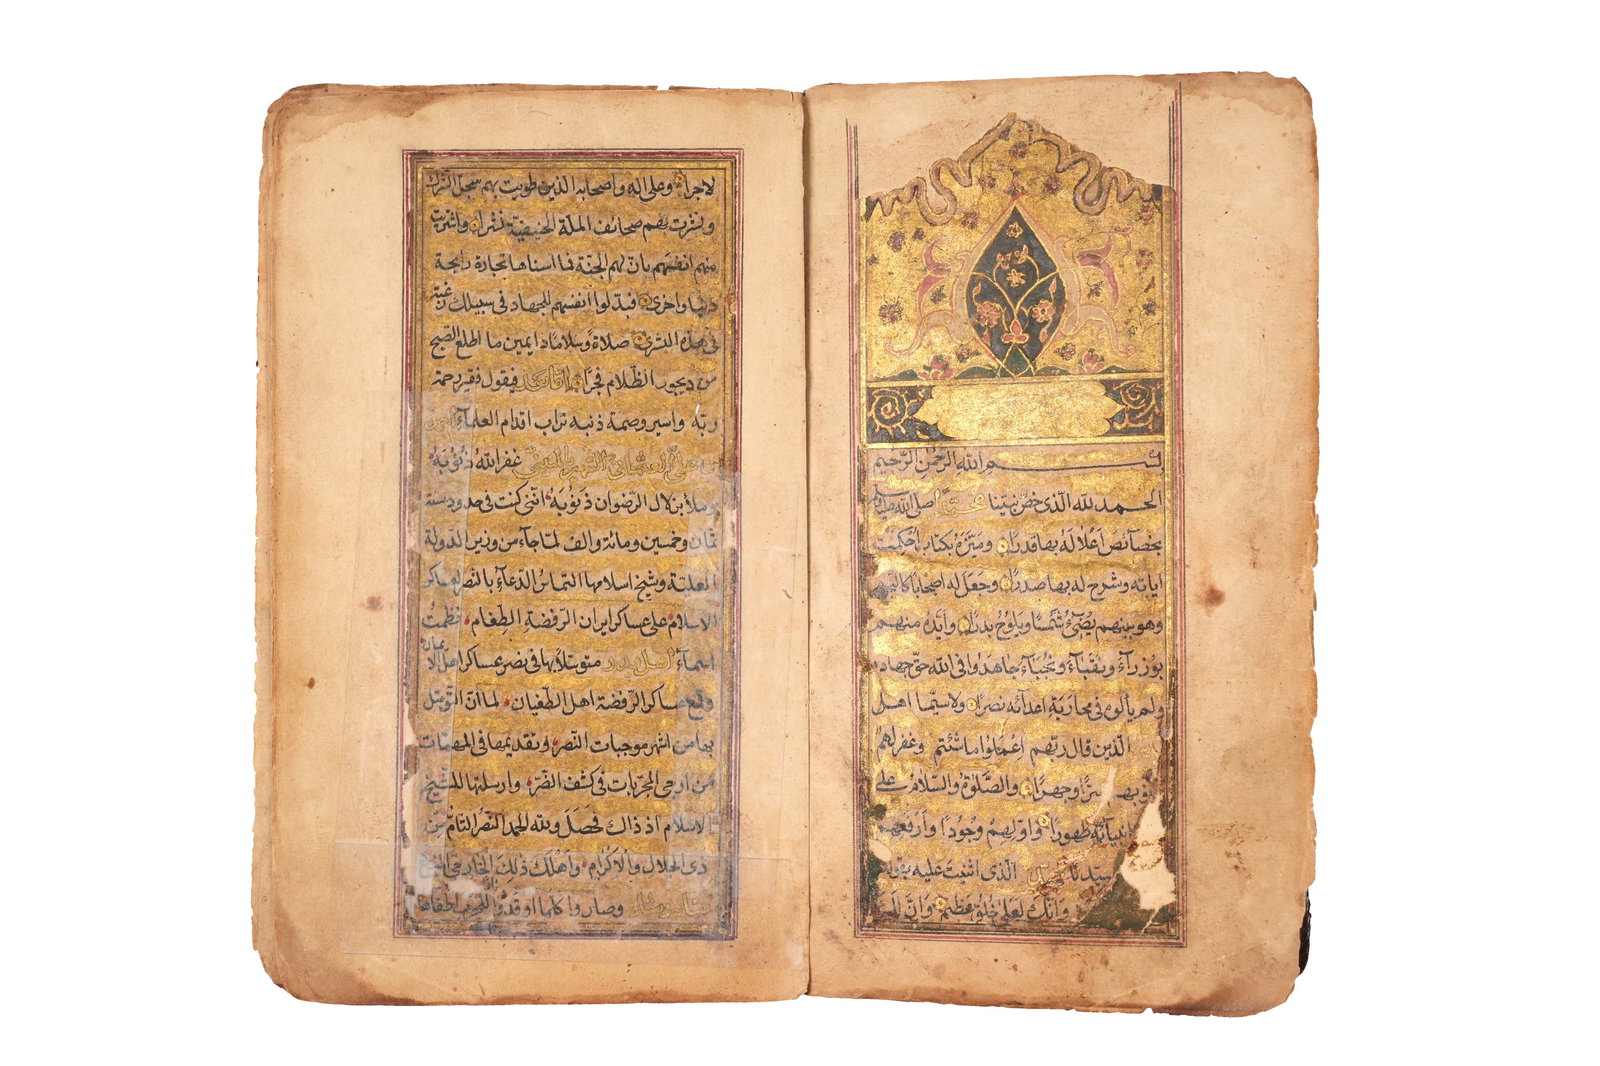 بسم الله الرحمن الرحيم
الحمد لله الذى خص نبينا محمدا صلى الله عليه وسلم
بخصآئص اعلا له بها قدرا وميزه بكتاب احكمت
اياته وشرح له بها صدرا وجعل له اصحابا كالنجوم
وهو بينهم يضئ شمسا ويلوح بدرا وايده منهم
بوزرآء ونقبآء ونجبآء جاهدوا فى الله حق جهاده
ولم يألوه فى محاربة اعدآئه نصرا ولا سيما اهل
الذين قال ربهم اعملوا ما شئتم وغفر لهم
سرا وجهرا والصلوة والسلام على
انبيآئه ظهورا واولهم وجودا وارفعهم
سيدنا محمد الذى اثنيت عليه بقولك
وانك لعلى خلق عظيم وان له
لاجرا وعلى اله واصحابه الذين طويت بهم سجل الشرك
ونشرت بهم صحائف الملة الحنيفية نشرا واشتريت
منهم انفسهم بان لهم الجنة فما اسناها تجارة رابحة
دنيا واخرى فبذلوا انفسهم للجهاد فى سبيلك رغبة
فى هذه البشرى صلاة وسلاما دايمين ما اطلع الصبح
من ديجور الظلام فجرا اما بعد فيقول فقير رحمة
ربه واسير وصمة ذنبه تراب اقدام العلمآء
على العثمانى الشهير غفر الله ذنوبه
وملأ بزلال الرضوان ذنوبه اننى كنت فى حدود سنة
ثمان وخمسين ومائة والف لما جآء من وزير الدولة
العلية وشيخ اسلامها التماس الدعآء بالنصر لعساكر
الاسلام على عساكر ايران الرفضة الطغام نظمت
اسمآء اهل بدر متوسلا بها فى نصر عساكر اهل الايمان
وقمع عساكر الرفضة اهل الطغيان لما ان التوسل
بها من اشهر موجبات النصر وتقديمها فى المهمات
من ارجى المجربات فى كشف الضر وارسلتها للشيخ
الاسلام اذ ذاك فحصل ولله الحمد النصر التام من
ذى الجلال والاكرام واهلك ذلك الخارجى
وصاروا كلما اوقدوا نارا للحرب اطفاها